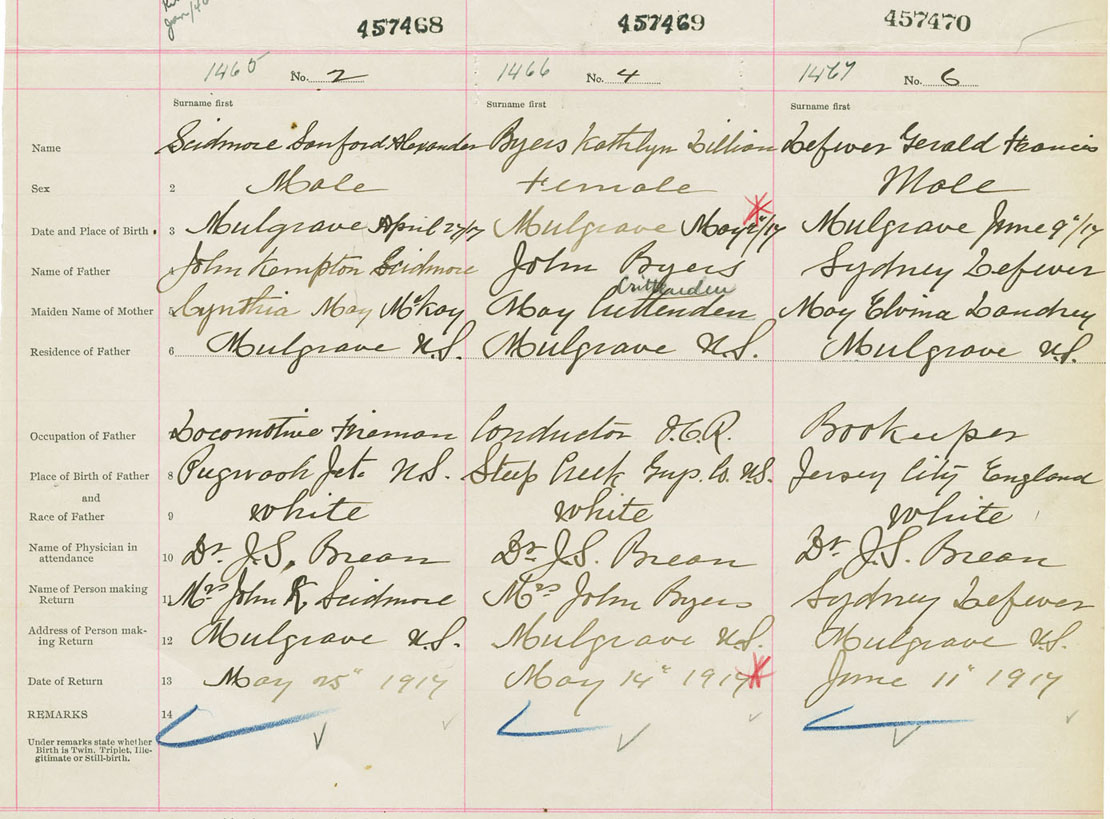 Jan/46
457468 457469 457470
1465 No. 2 1466 No. 4 1467 No. 6
Surname first Surname first Surname first
Name Scidmore Sanford Alexander Byers Kathlyn Lillian Lefever Gerald Francis
Sex 2 Male Female Male
Date and Place of Birth 3 Mulgrave April 27/17 Mulgrave May 2"/17 Mulgrave June 9"/17
Name of Father 4 John Kempton Scidmore John Byers Sydney Lefever
Crittenden
Maiden Name of Mother 5 Cynthia May McKay May Cuttenden May Elvina Landrey
Residence of Father 6 Mulgrave N.S. Mulgrave N.S. Mulgrave N.S.
Occupation of Father Locomotive Fireman Conductor I.C.R. Bookeeper
Place of Birth of Father 8 Pugwash Jct. N.S. Steep Creek Guy. Co. N.S. Jersey City England
and
Race of Father 9 white white white
Name of Physician in
attendance 10 Dr. J.S. Brean Dr. J.S. Brean Dr. J.S. Brean
Name of Person making
Return 11 Mrs John K Scidmore Mrs John Byers Sydney Lefever
Address of Person mak-
ing Return 12 Mulgrave N.S. Mulgrave N.S. Mulgrave N.S.
Date of Return 13 May 25" 1917 May 14" 1917 June 11" 1917
REMARKS 14
Under remarks state whether
Birth is Twin, Triplet, Ille-
gitimate or Still-birth.